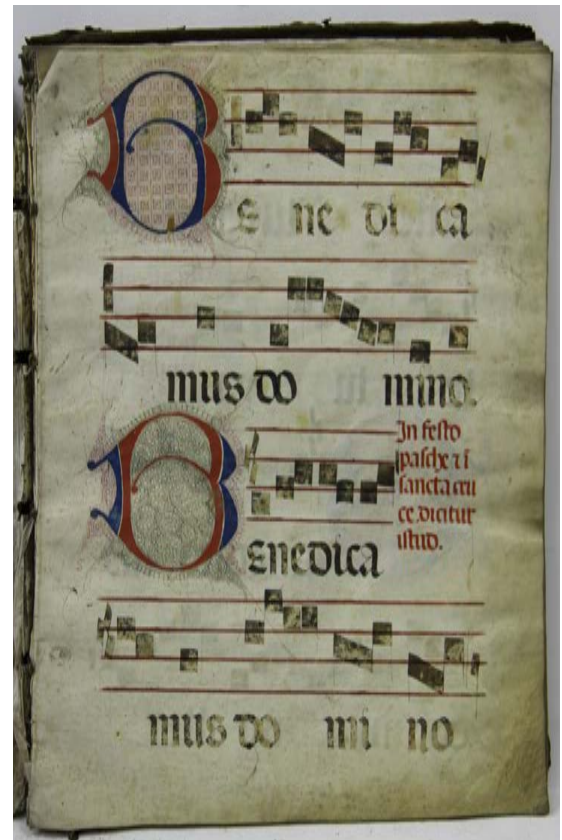 Be ne di ca
mus do mino.
In festo
pasche ⁊ ī
sancta cru
ce dicitur
istud.
Benedica
mus do mi no